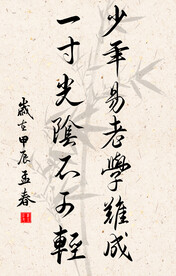 少年易老學難成
一寸光陰不可輕
歲在甲辰孟春